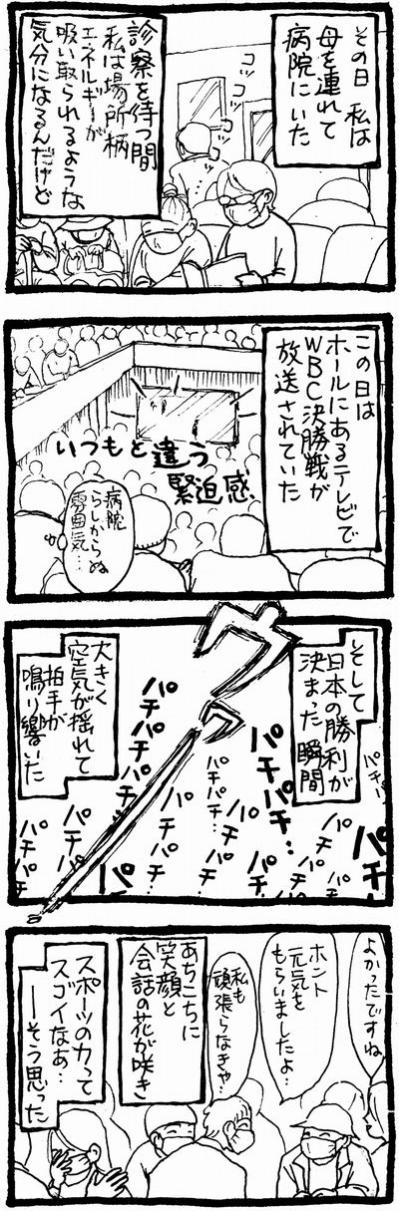 その日 私は
母を連れて
病院にいた
コツ
コツ
コツ…
診察を待つ間
私は場所柄
エネルギーが
吸い取られるような
気分になるんだけど
この日は
ホールにあるテレビで
WBC決勝戦が
放送されていた
いつもと違う
緊迫感
病院
らしからぬ
雰囲気…
そして
日本の勝利が
決まった瞬間
ウワー
パチパチ…
パチパチ…
パチパチ…
パチパチ
パチパチ…
パチパチ
パチパチ…
パチパチ…
大きく
空気が揺れて
拍手が
鳴り響いた
よかったですね
ホント
元気を
もらいましたよ…
私も
頑張らなきゃ…
あちこちに
笑顔と
会話の花が咲き
スポーツの力って
スゴイなぁ…
──そう思った